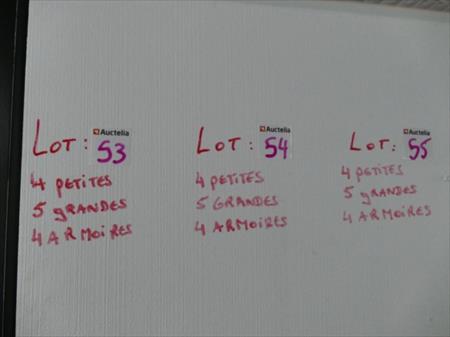 Auctelia
LOT: 53
4 PETITES
5 GRANDES
4 ARMOIRES
Auctelia
LOT: 54
4 PETITES
5 GRANDES
4 ARMOIRES
Auctelia
LOT: 55
4 PETITES
5 GRANDES
4 ARMOIRES